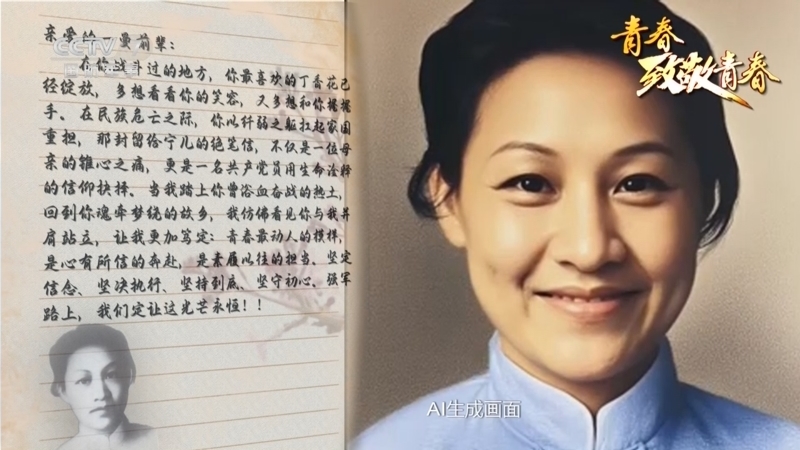 亲爱的一曼前辈:
在你战斗过的地方,你最喜欢的丁香花已
经绽放,多想看看你的笑容,又多想和你握握
手。在民族危亡之际,你以纤弱之躯扛起家国
重担,那封留给宁儿的绝笔信,不仅是一位母
亲的锥心之痛,更是一名共产党员用生命诠释
的信仰抉择。当我踏上你曾浴血奋战的热土,
回到你魂牵梦绕的故乡,我仿佛看见你与我并
肩站立,让我更加笃定:青春最动人的模样,
是心有所信的奔赴,是素履以往的担当。坚定
信念、坚决执行、坚持到底、坚守初心。强军
路上,我们定让这光芒永恒!!
CCTV
青春
致敬青春
AI生成画面